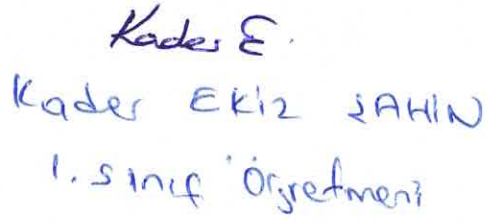 Kader E.
Kader EKiz ŞAHİN
1. sınıf Öğretmeni